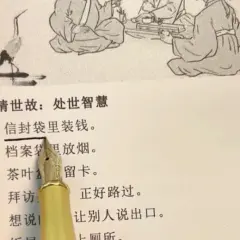 情世故：处世智慧
信封袋里装钱。
档案袋里放烟。
茶叶 留卡。
拜访 正好路过。
想说 让别人说出口。
上厕所。